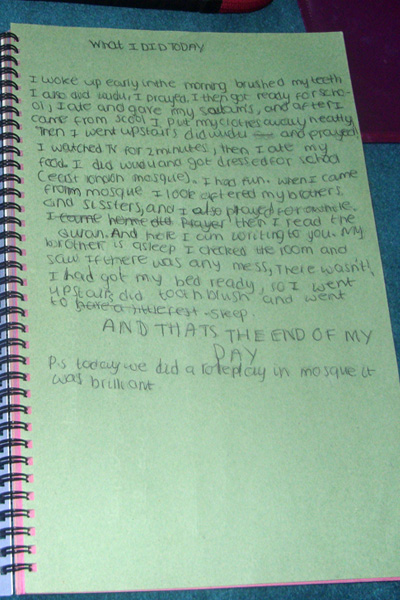 What I DID TODAY
I woke up early in the morning brushed my teeth
I also did wudu, I prayed. I then got ready for scho-
ol, I ate and gave my salaams, and after I
came from scool I put my clothes away neatly
Then I went upstairs did wudu and prayed!
I watched TV for 2 minutes, then I ate my
food. I did wudu and got dressed for school
(east london mosque). I had fun. When I came
from mosque I look aftered my brothers
and sissters, and I also prayed for
I came home did prayer then I read the
Quran. And here I am writing to you. My
brother is asleep I checked the room and
saw if there was any mess, There wasn't!
I had got my bed ready, so I went
upstairs did toothbrush and went
to have a little rest sleep.
AND THATS THE END OF MY
DAY
P.s today we did a roleplay in mosque it
was brilliant